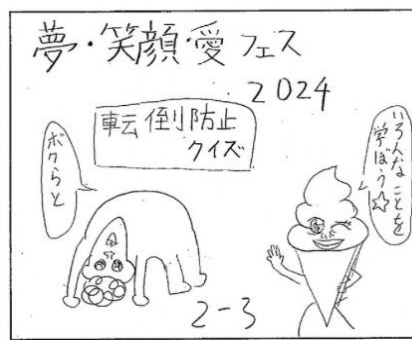 夢・笑顔・愛 フェス
2024
転倒防止
クイズ
ボクらと
いろんなことを
学ぼう☆
2-3